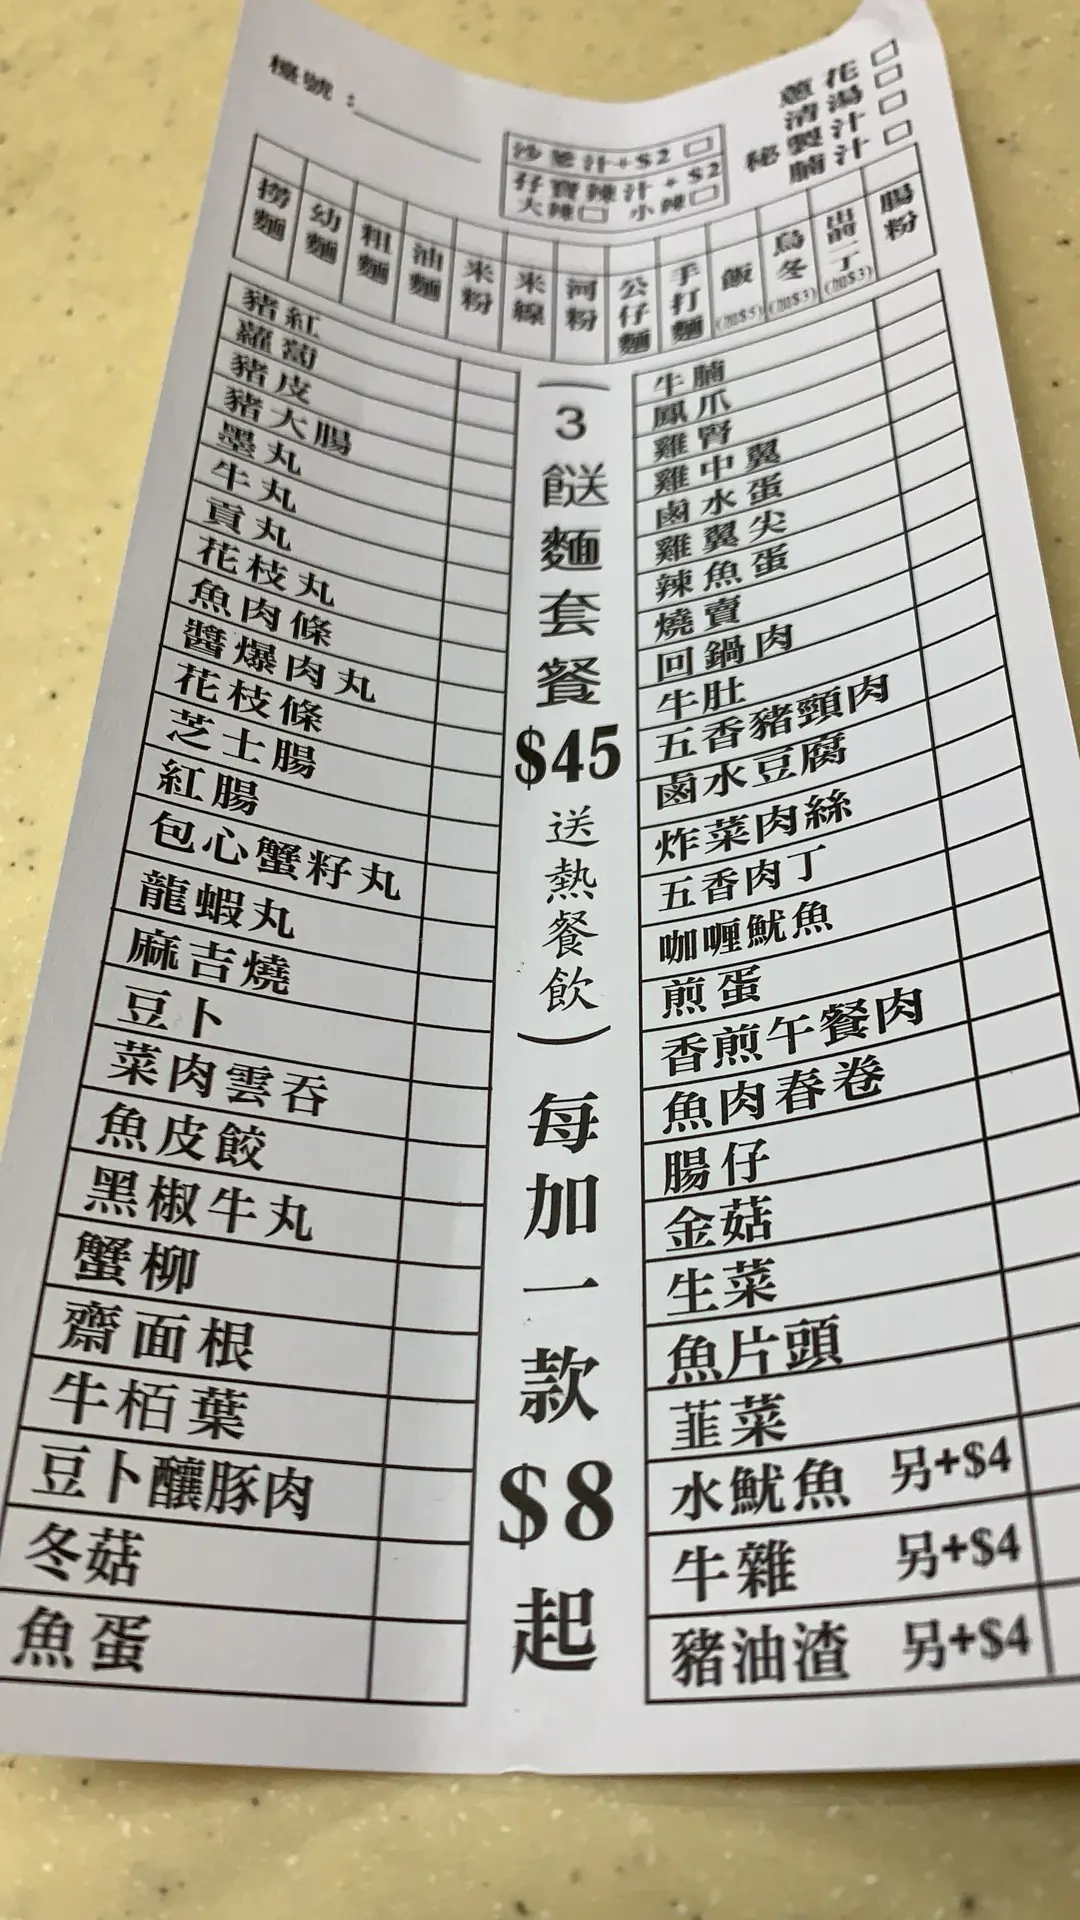 檯號：
沙爹汁+$2 □
孖寶辣汁+$2
大辣□ 小辣□
蔥花 □
清湯 □
秘製汁 □
腩汁 □
撈麵
幼麵
粗麵
油麵
米粉
米線
河粉
公仔麵
手打麵
飯(加$5)
烏冬(加$3)
出前一丁(加$3)
腸粉
豬紅
蘿蔔
豬皮
豬大腸
墨丸
牛丸
貢丸
花枝丸
魚肉條
醬爆肉丸
花枝條
芝士腸
紅腸
包心蟹籽丸
龍蝦丸
麻吉燒
豆卜
菜肉雲吞
魚皮餃
黑椒牛丸
蟹柳
齋面根
牛栢葉
豆卜釀豚肉
冬菇
魚蛋
(3餸麵套餐$45送熱餐飲)每加一款$8起
牛腩
鳳爪
雞腎
雞中翼
鹵水蛋
雞翼尖
辣魚蛋
燒賣
回鍋肉
牛肚
五香豬頸肉
鹵水豆腐
炸菜肉絲
五香肉丁
咖喱魷魚
煎蛋
香煎午餐肉
魚肉春卷
腸仔
金菇
生菜
魚片頭
韮菜
水魷魚 另+$4
牛雜 另+$4
豬油渣 另+$4